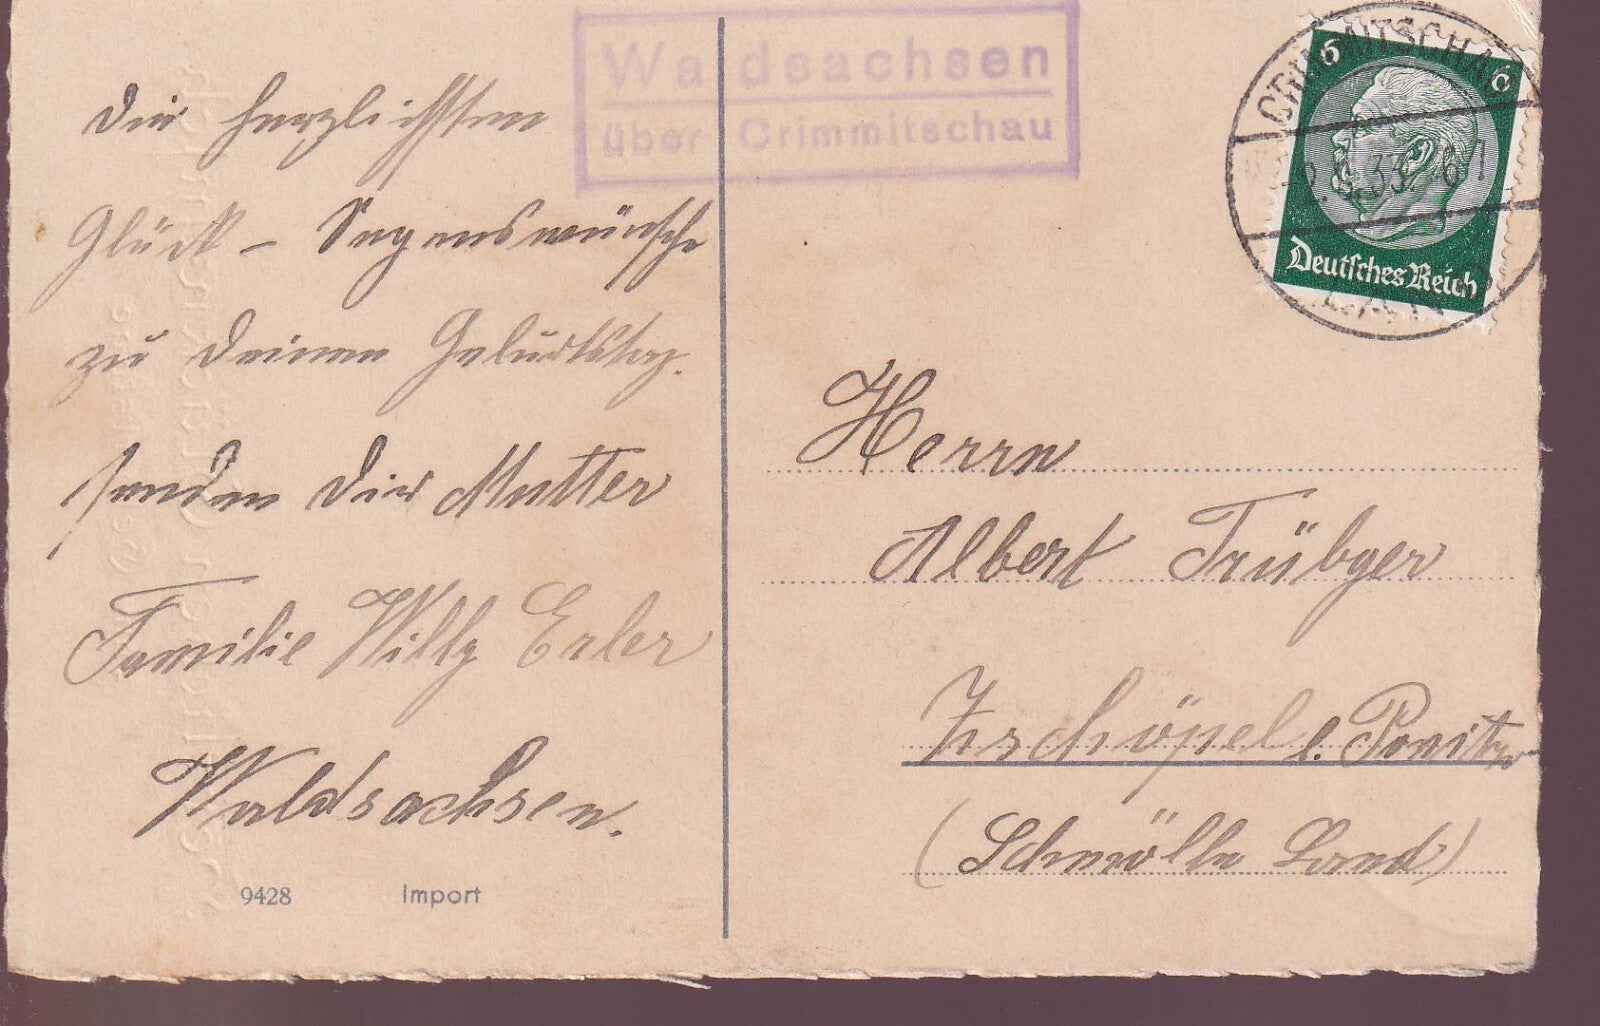 Waldsachsen
über Crimmitschau
CRIMMITSCHAU
6 6
Deutsches Reich
Die herzlichsten
Glück - Segenswünsche
zu Deinen Geburtstag.
senden Dir Mutter
Familie Willy Erler
Waldsachsen.
9428 Import
Herrn
Albert Trübger
Zschöpel b. Ponitz
(Schmölln Land)